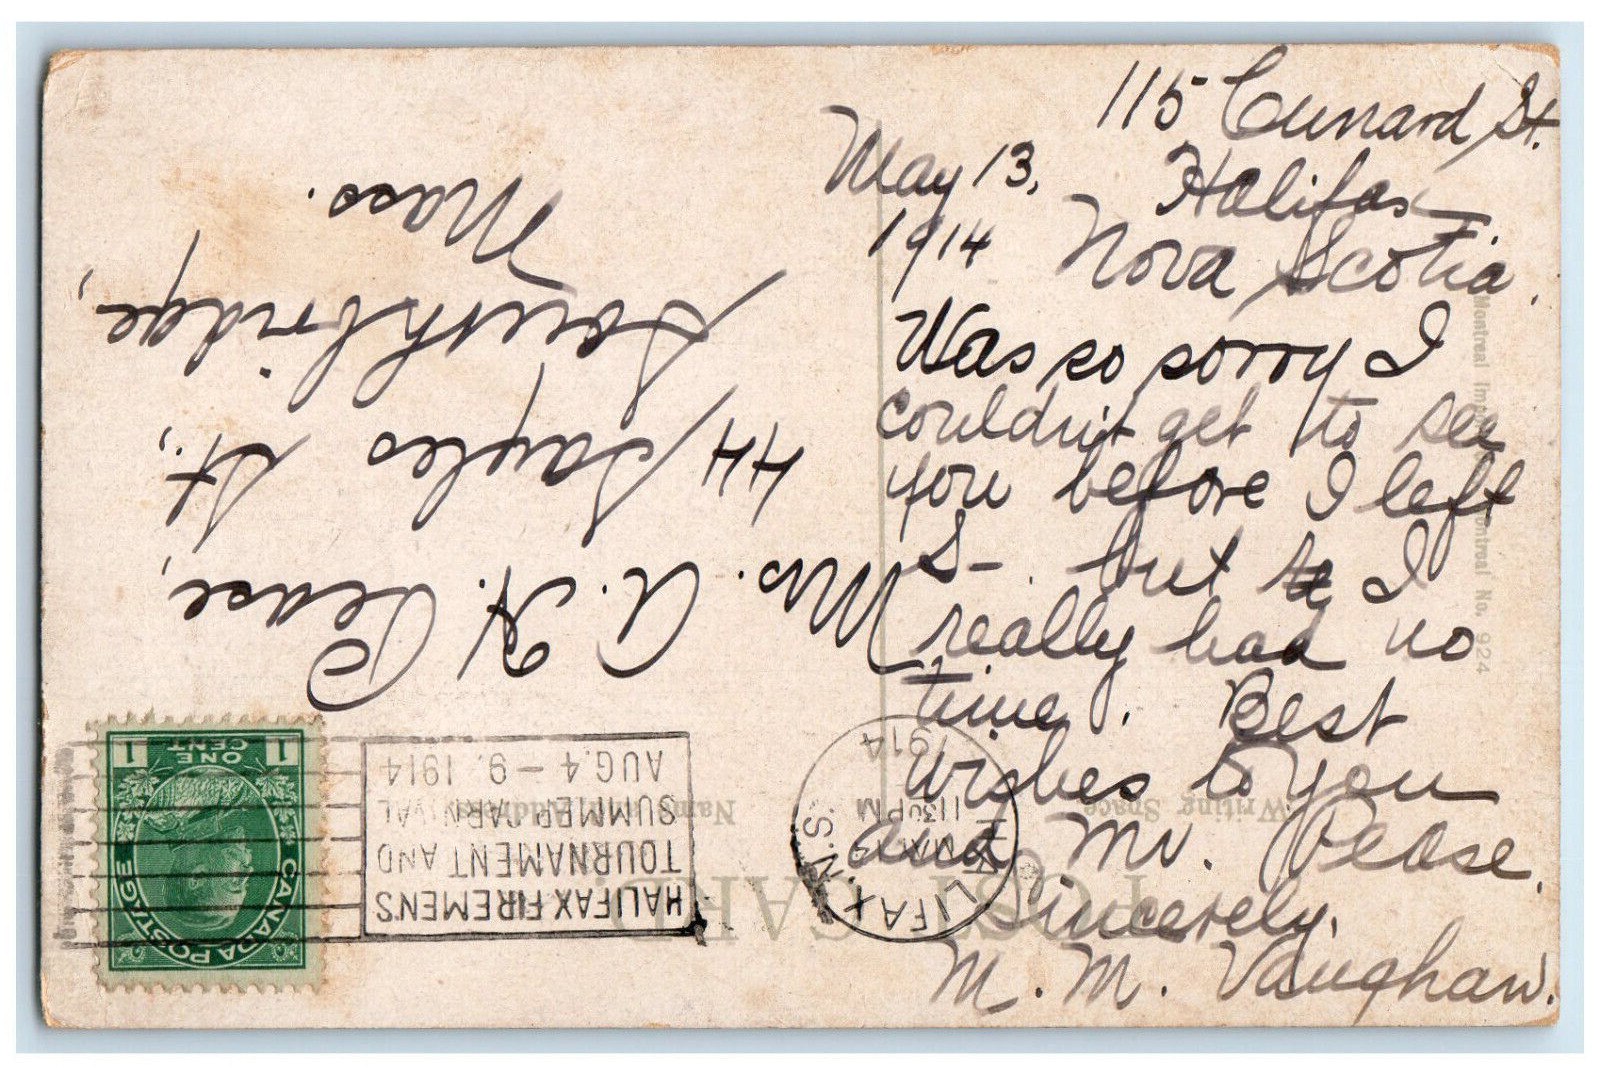 115 Cunard St.
May 13, Halifax
1914 Nova Scotia.
Was so sorry I
couldn't get to see
you before I left
S- but I
really had no
time. Best
wishes to you
and Mr. Pease.
Sincerely,
M. M. Vaughan.
Mrs. A. H. Pease,
44 Sayles St.,
Southbridge,
Mass.
POST CARD
Writing Space
Name and Address
HALIFAX, N.S.
MY 13
1130 PM
1914
HALIFAX FIREMENS
TOURNAMENT AND
SUMMER CARNIVAL
AUG. 4 - 9. 1914
CANADA POSTAGE
1 ONE CENT 1
Montreal
Montreal No. 924